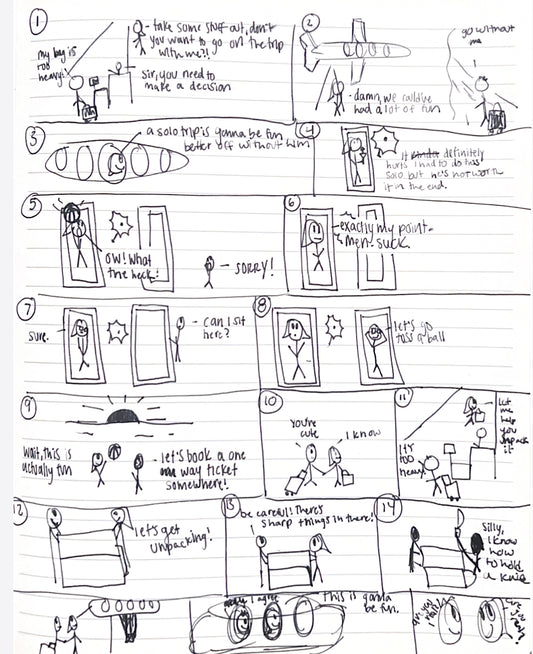 1
- take some stuff out, don't
you want to go on the trip
with me?!
my bag is
too
heavy!
Sir, you need to
make a decision
2
go without
me
- damn, we could've
had a lot of fun
3
a solo trip is gonna be fun
better off without him
4
It definitely
hurts I had to do this
solo but he's not worth
it in the end.
5
OW! What
the heck!
- SORRY!
6
- exactly my point -
men suck.
7
sure.
- can I sit
here?
8
let's go
toss a ball
9
wait, this is
actually fun
- let's book a one
way ticket
somewhere!
10
You're
cute
I know
11
Let
me
help
you
unpack
it
It's
too
heavy
12
let's get
unpacking!
13
be careful! There's
sharp things in there!
14
Silly,
I know
how
to hold
a knife
I agree
This is gonna
be fun.